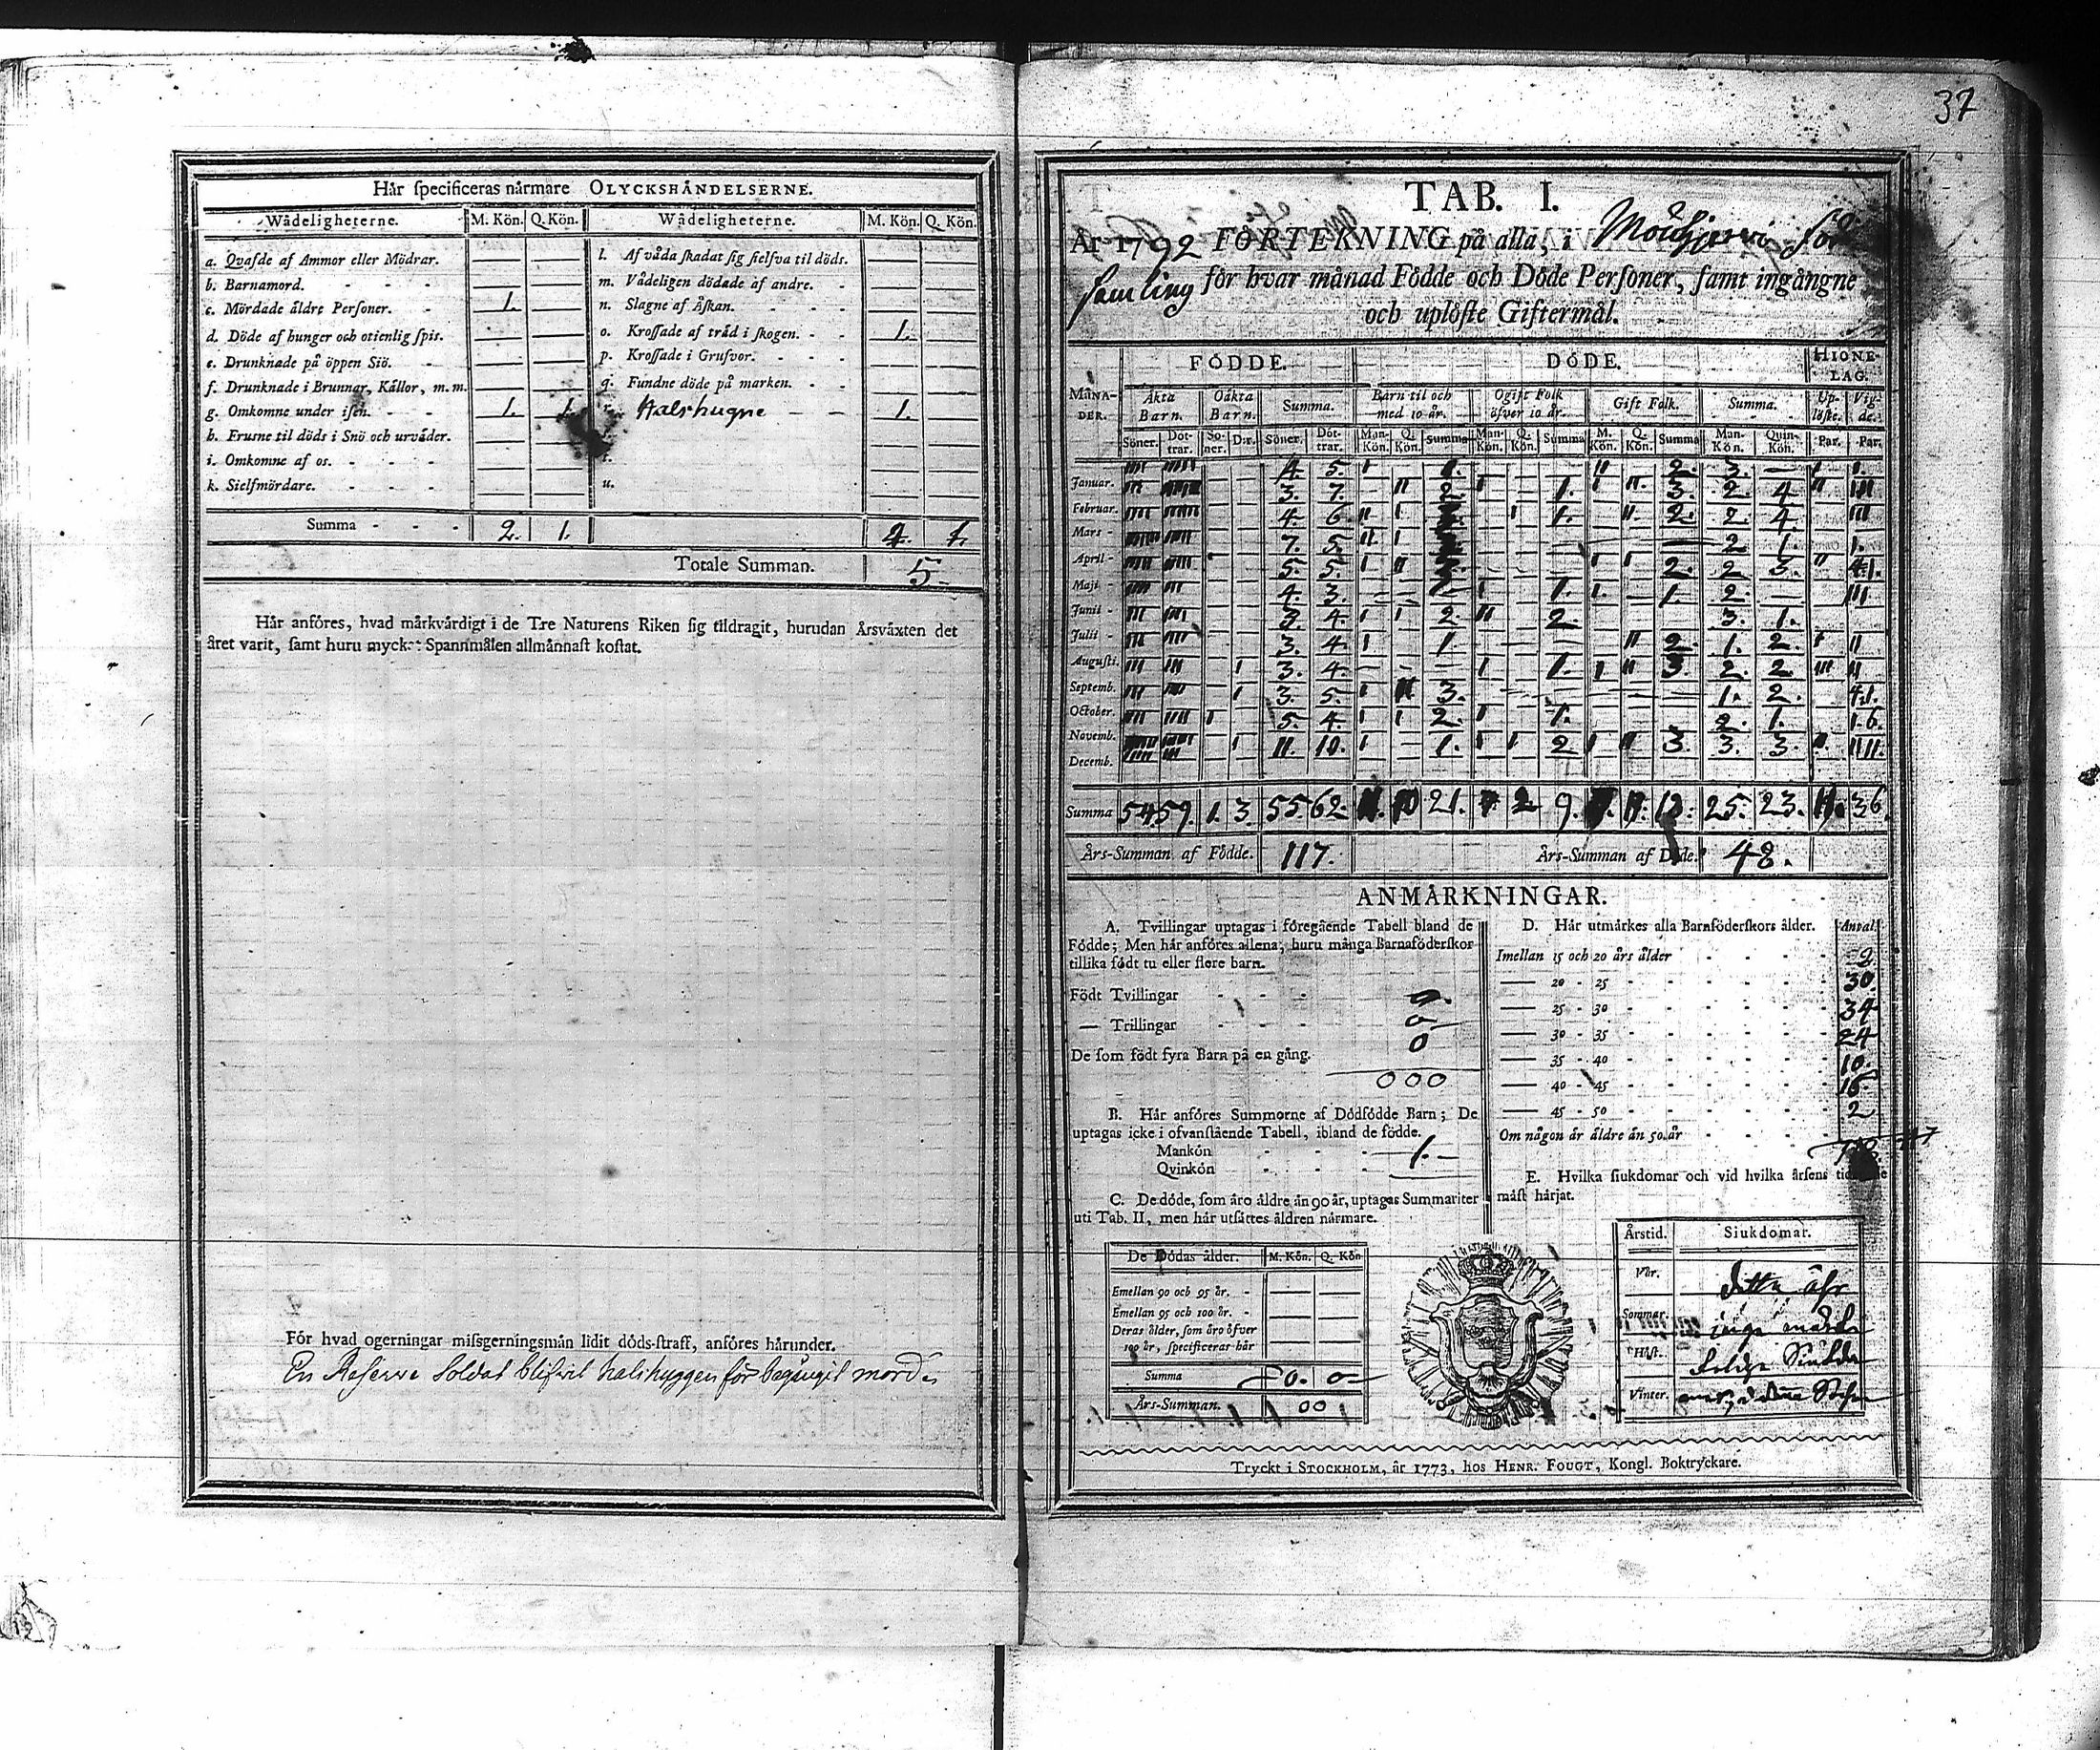 Hår specificeras nårmare OLYCKSHÅNDELSERNE.
Wådeligheterne. M. Kön. Q. Kön. Wådeligheterne. M. Kön. Q. Kön.
a. Qvafde af Ammor eller Mödrar. — — l. Af våda skadat sig sielfva til döds. — —
b. Barnamord. — — m. Vådeligen dödade af andre. — —
c. Mördade äldre Personer. 1. — n. Slagne af Åskan. — —
d. Döde af hunger och otienlig spis. — — o. Krossade af träd i skogen. 1. —
e. Drunknade på öppen Siö. — — p. Krossade i Grufvor. — —
f. Drunknade i Brunnar, Källor, m.m. — — q. Fundne döde på marken. — —
g. Omkomne under isen. 1. 1. Halshugne — — 1. —
h. Frusne til döds i Snö och urväder. — —
i. Omkomne af os. — —
k. Sielfmördare. — — u. — —
Summa 2. 1.
Totale Summan. 5
Hår anföres, hvad mårkvårdigt i de Tre Naturens Riken sig tildragit, hurudan Årsvåxten det
året varit, samt huru mycket Spannmålen allmånnast kostat.
För hvad ogerningar missgerningsmän lidit döds-straff, anföres hårunder.
En Reserve Soldat blifwit halshuggen för begångit mord
37
TAB. I.
År 1792 FÖRTEKNING på alla, i
samling för hvar månad Födde och Döde Personer, samt ingångne
och uplöste Giftermål.
FÖDDE. DÖDE. HIONE-LAG.
MÅNA-DER. Äkta Barn. Oäkta Barn. Summa. Barn til och med 10 år. Ogift Folk öfver 10 år. Gift Folk. Summa. Up-löste. Vig-de.
Söner. Döt-trar. Sö-ner. D:r. Söner. Döt-trar. Man-Kön. Q. Kön. Summa Man-Kön. Q. Kön. Summa M. Kön. Q. Kön. Summa Man-Kön. Quin-Kön. Par. Par.
Januar. 4. 5. 1. 2. 3. —
Februar. 3. 7. 2 1. 3. 2 4
Mars 4. 6. 1. 2. 2. 4.
April 7. 5. 2 1.
Maji 5. 5. 2. 2 3.
Junii 4. 3. 1. 1. 2.
Julii 3. 4. 2. 2 3. 1.
Augusti. 3. 4. 1. 2. 1. 2.
Septemb. 3. 4. 1. 3. 2. 2
October. 3. 5. 3. 1. 2.
Novemb. 5. 4. 2. 1. 2. 1.
Decemb. 11. 10. 1. 2 3 3. 3.
Summa 54 59. 1. 3. 55 62. 21. 2 9. 25. 23. 36.
Års-Summan af Födde. 117. Års-Summan af Döde. 48.
ANMÅRKNINGAR.
A. Tvillingar uptagas i föregående Tabell bland de
Födde; Men hår anföres allena, huru många Barnaföderskor
tillika födt tu eller flere barn.
Födt Tvillingar
— Trillingar 0
De som födt fyra Barn på en gång. 0
000
B. Hår anföres Summorne af Dödfödde Barn; De
uptagas icke i ofvanstående Tabell, ibland de födde.
Mankön 1.
Qvinkön —
C. De döde, som äro äldre än 90 år, uptages Summariter
uti Tab. II, men hår utsåttes åldren nårmare.
De Dödas ålder. M. Kön. Q. Kön
Emellan 90 och 95 år. — —
Emellan 95 och 100 år. — —
Deras ålder, som äro öfver
100 år, specificeras hår — —
Summa 0. 0
Års-Summan. 00
D. Hår utmårkes alla Barnföderskors ålder. Antal.
Imellan 15 och 20 års ålder 2
— 20 - 25 30
— 25 - 30 34
— 30 - 35 24
— 35 - 40 10.
— 40 - 45 16
— 45 - 50 2
Om någon är äldre än 50. år
E. Hvilka siukdomar och vid hvilka årsens
måst hårjat.
Årstid. Siukdomar.
Vår. detta åhr
Sommar. inga märk
Höst.
Vinter.
Tryckt i STOCKHOLM, år 1773, hos HENR. FOUGT, Kongl. Boktryckare.